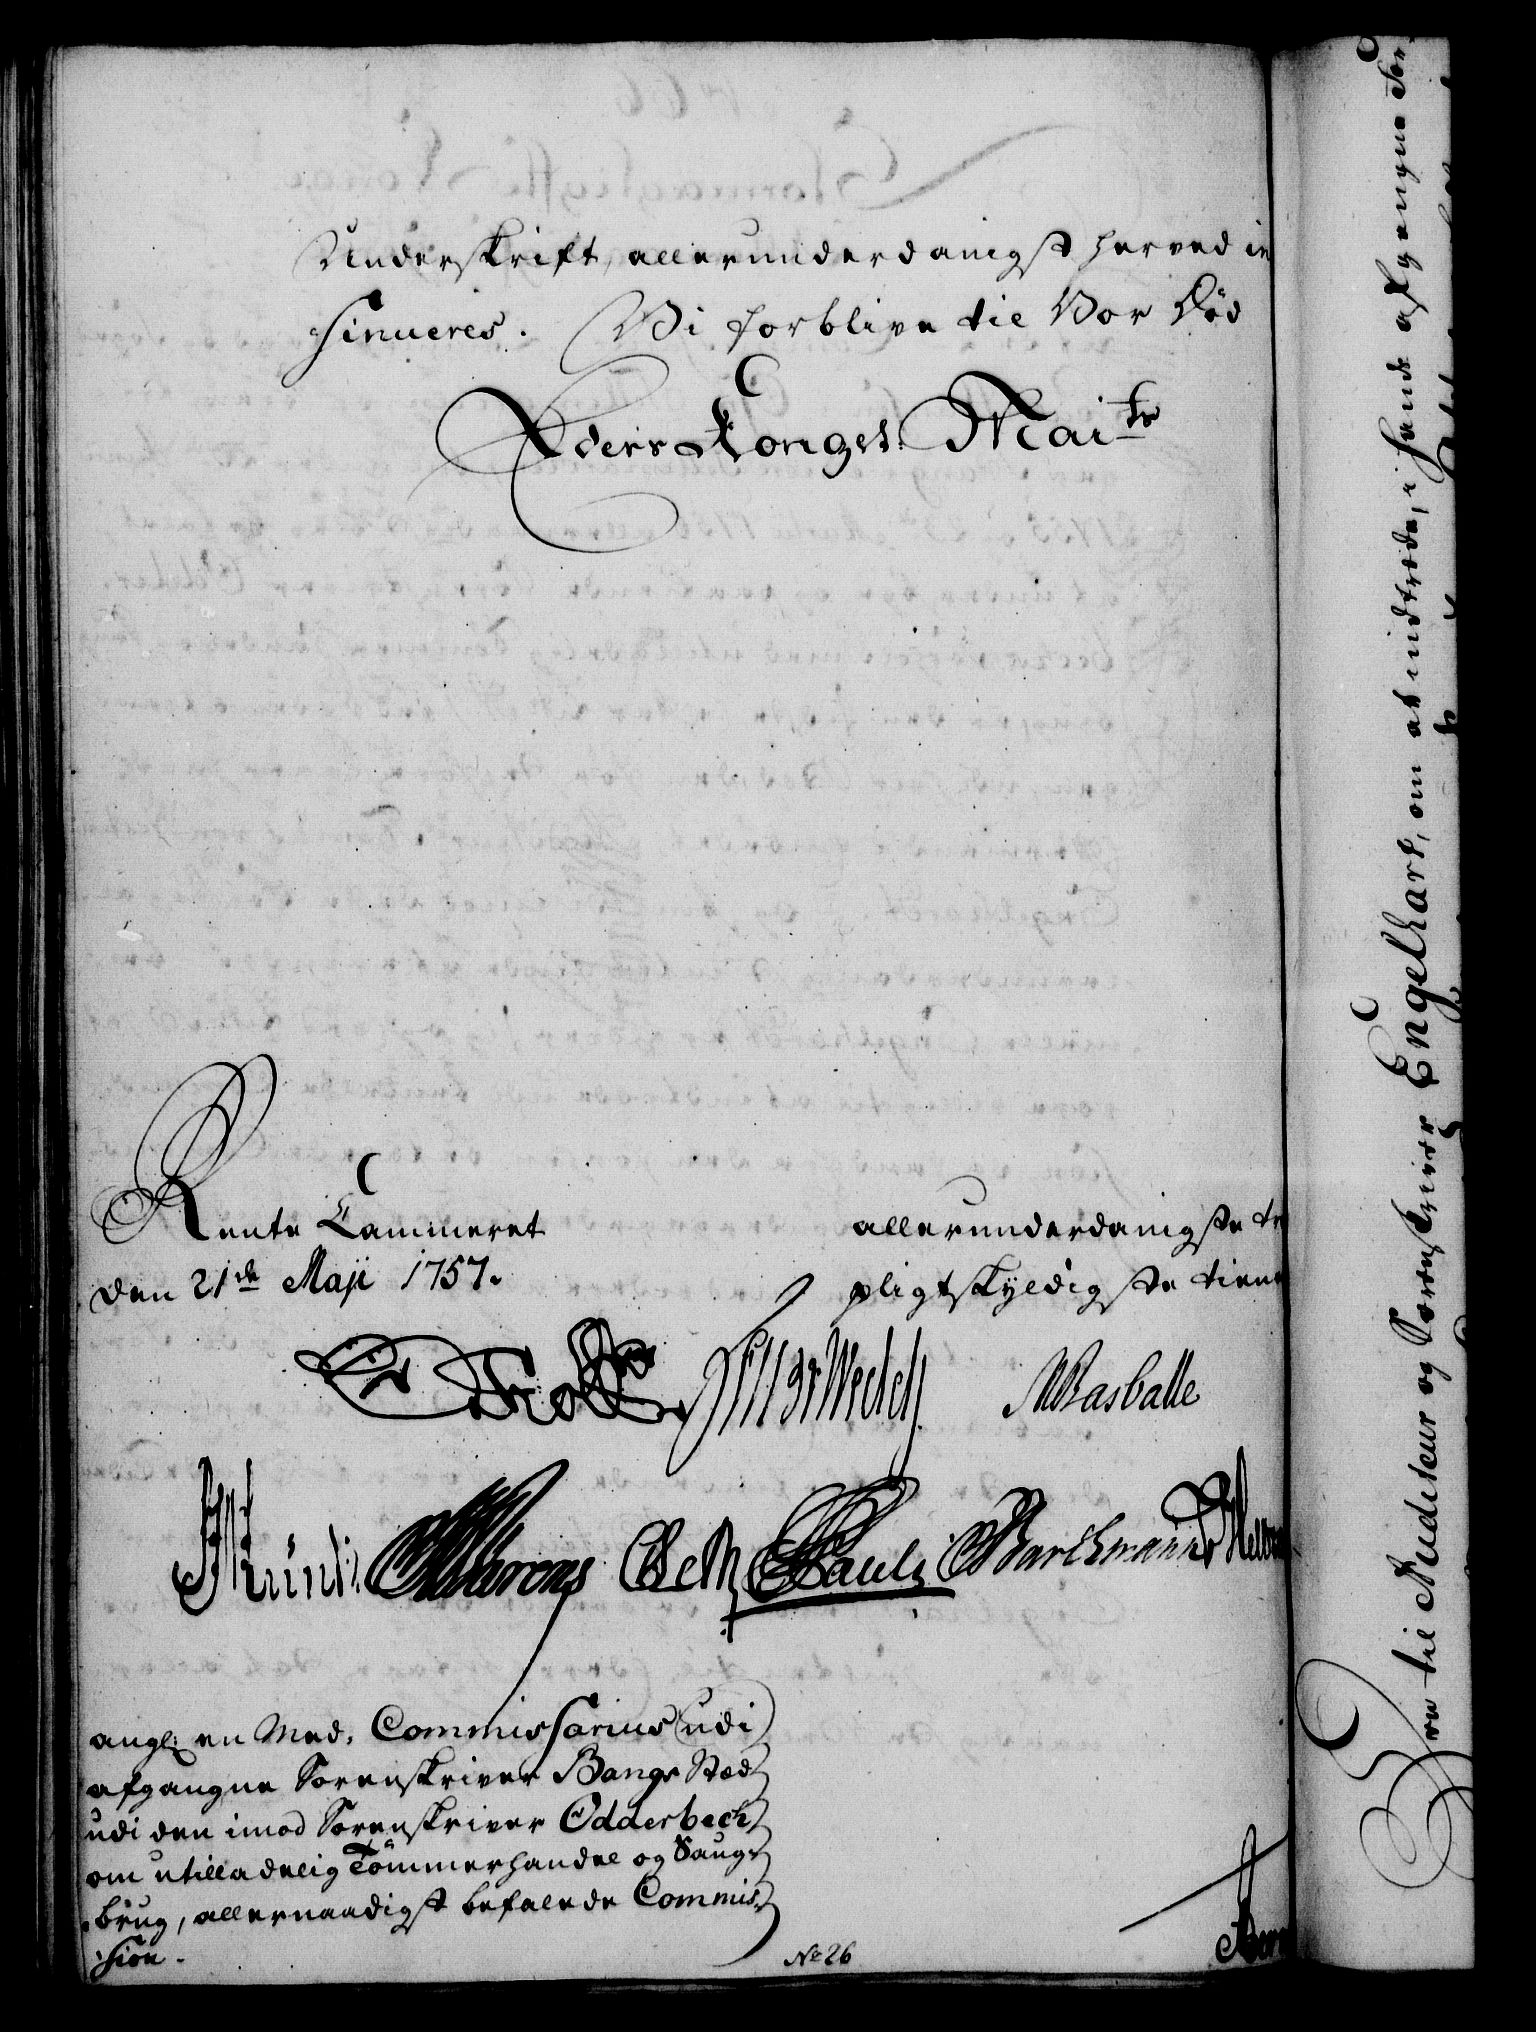 Underskrift, allerunderdanigst herved in
sinueres. Vi forblive til Vor Död
Eders Konges. Mai.ts
Rente Cammeret
den 21de Maji 1757.
allerunderdanigste tr
pligtskyldigste tiene
Wedel
Rasballe
Pauli Barthmann
angl: en Med, Commissarius udi
afgangne Sorenskriver Bangs Stæd
udi den imod Sorenskriver Odderbech
om utilladelig Tömmerhandel og Saug-
brug, allernaadigst befalede Commis
sion.
No 26
til Auditeur og Sorenskriver Engelhart, om at indtræde, i Hende afgangne Sor